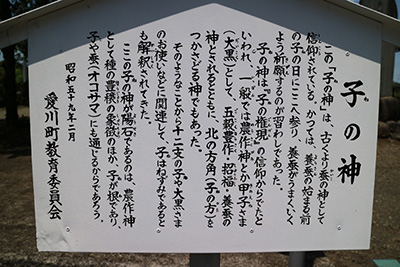 子の神
この「子の神」は、古くより蚕の神として
信仰されている。かつては、養蚕の始まる前
の子の日にここへ参り、養蚕がうまくいく
よう祈願するのが習わしであった。
子の神は、「子の権現」の信仰からでたと
いわれ、一般では農作神とか甲子さま
(大黒)として、五穀豊作・招福・養蚕の
神とされるとともに、北の方角(子の方)を
つかさどる神でもあった。
そのようなことから十二支の子や大黒さま
のお使いなどに関連して、子はねずみであると
も解釈されてきた。
ここの子の神が陽石であるのは、農作神
として種の豊穣の象徴のほか、子が根であり、
子や蚕(オコサマ)にも通じるからであろう。
昭和五十九年二月
愛川町教育委員会